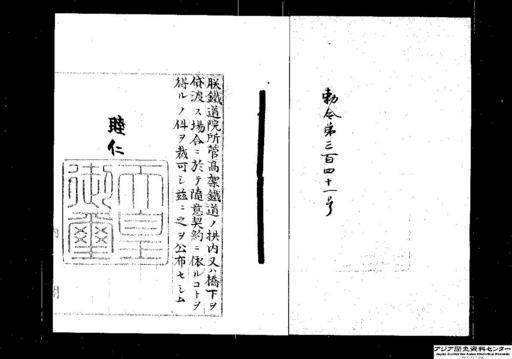 勅令第三百四十一号
朕鐵道院所管高架鐵道ノ拱内又ハ橋下ヲ
貸渡ス場合ニ於テ隨意契約ニ依ルコトヲ
得ルノ件ヲ裁可シ玆ニ之ヲ公布セシム
睦仁
天皇
御璽
アジア歴史資料センター
Japan Center for Asian Historical Records